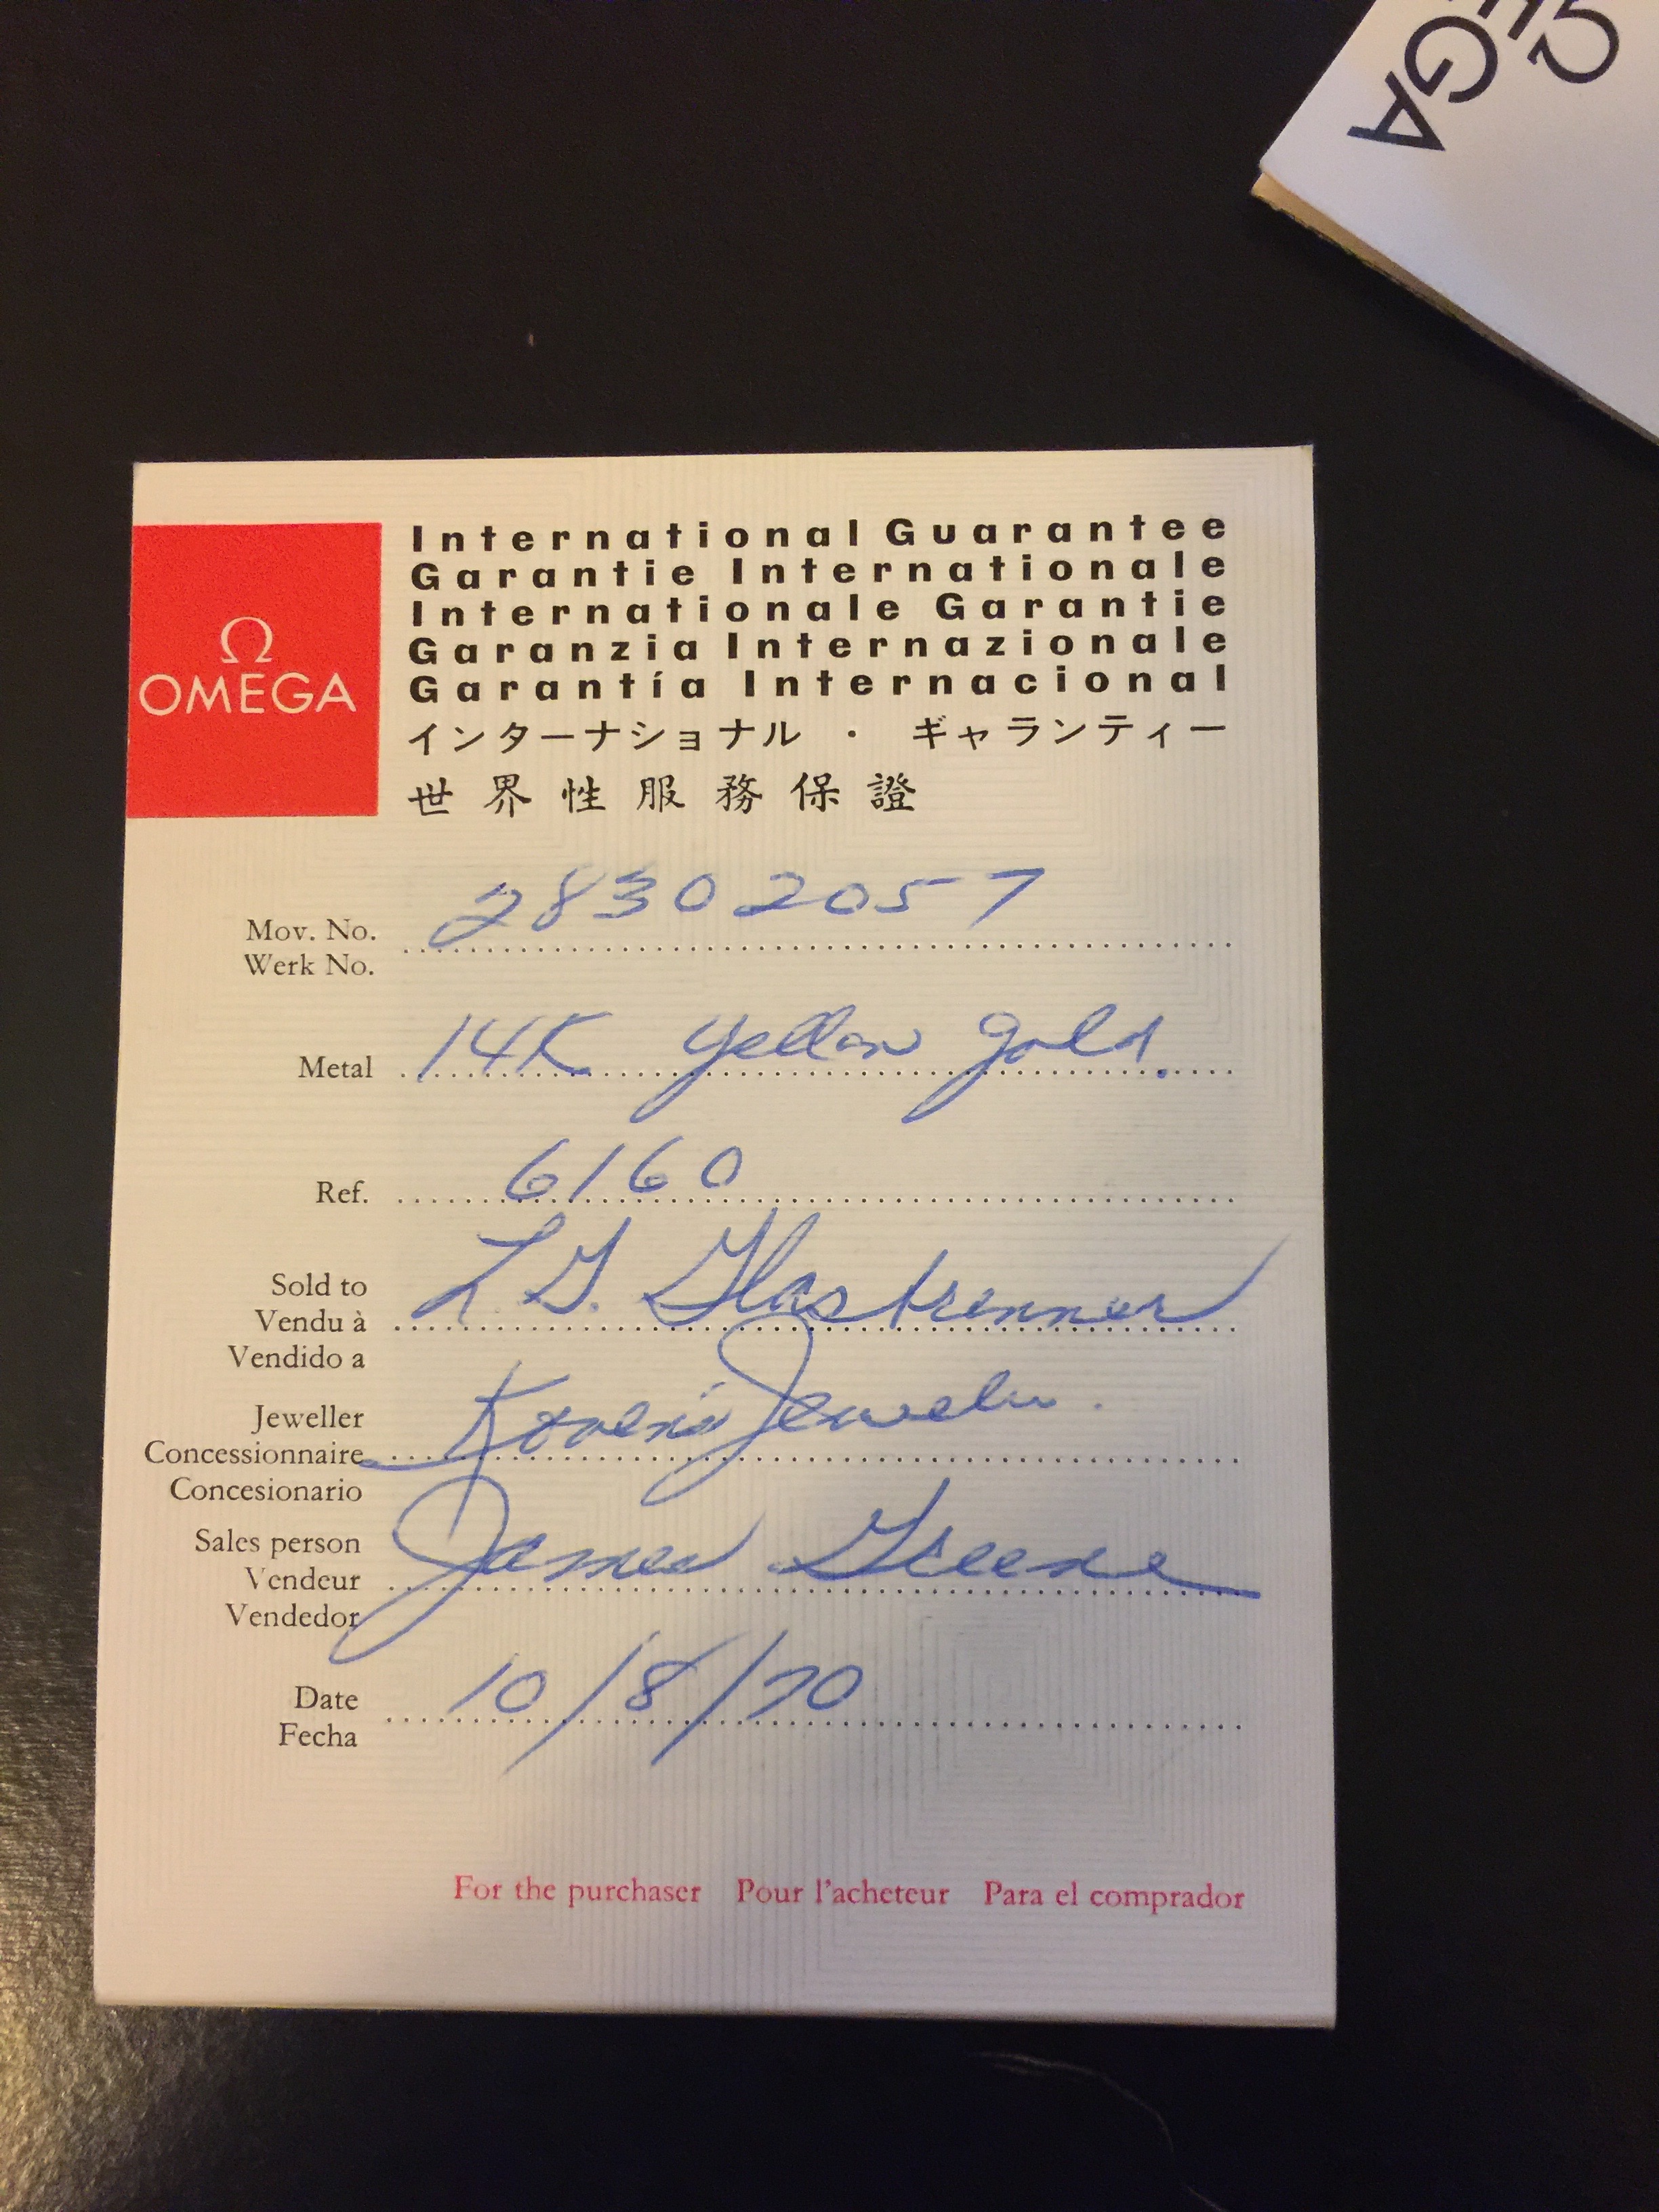 Ω
GA
International Guarantee
Garantie Internationale
Internationale Garantie
Garanzia Internazionale
Garantía Internacional
インターナショナル ・ ギャランティー
世界性服務保證
Ω
OMEGA
Mov. No. 28302057
Werk No.
Metal 14K yellow gold.
Ref. 6160
Sold to
Vendu à L. G.
Vendido a
Jeweller
Concessionnaire
Concesionario
Sales person
Vendeur James Greene
Vendedor
Date 10/8/70
Fecha
For the purchaser Pour l'acheteur Para el comprador